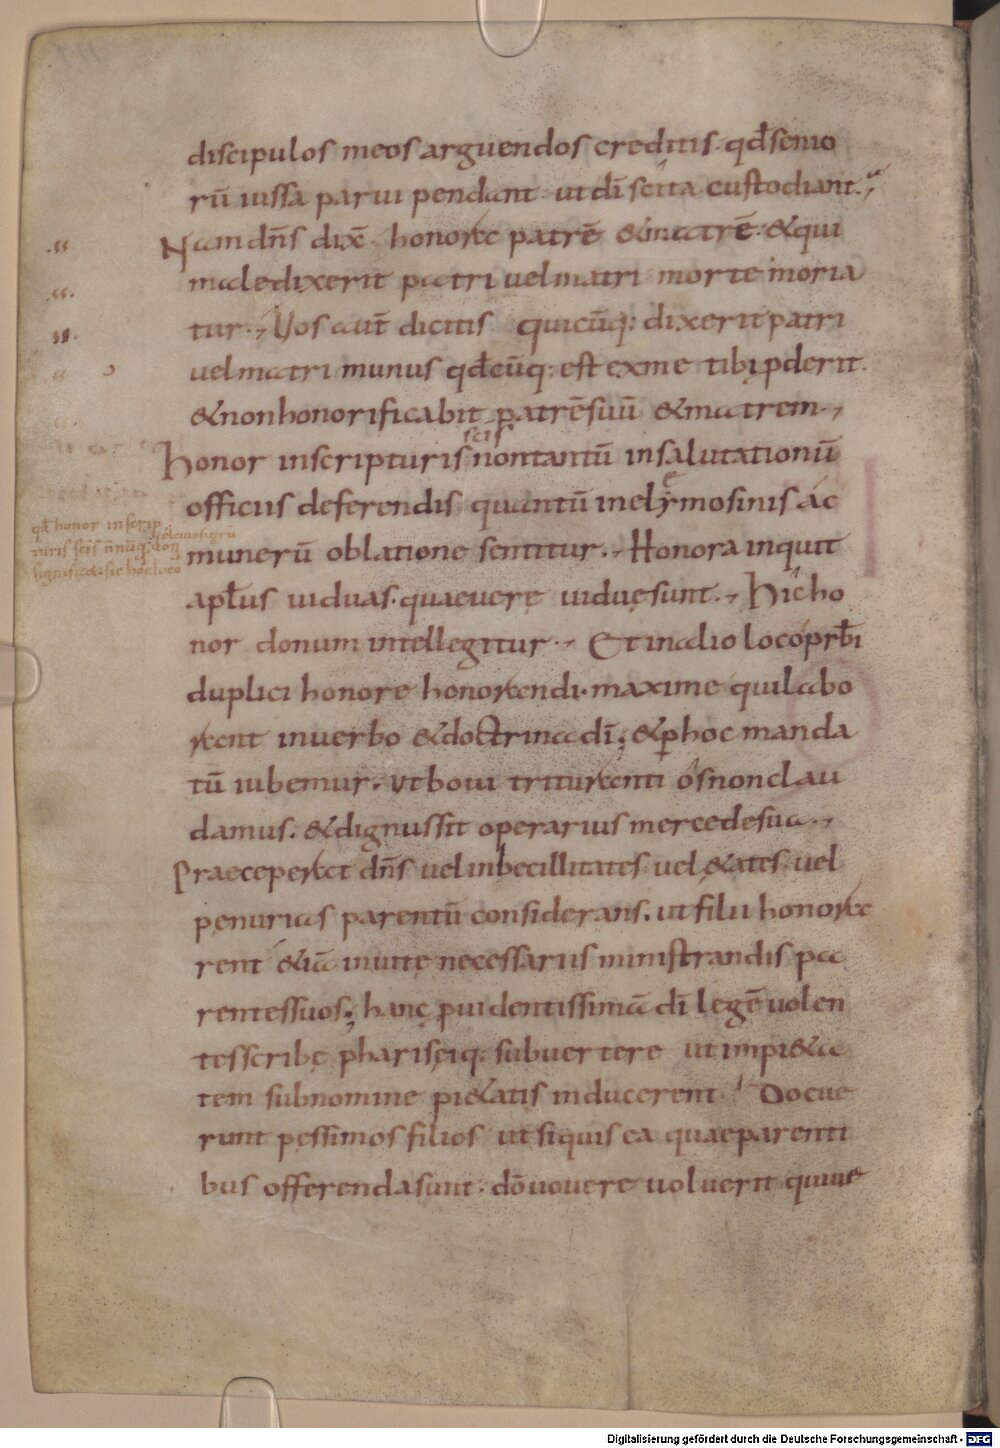 discipulos meos arguendos creditis· qđ senio
rū iussa parui pendant· ut dī scita custodiant·,
Nam dn̄s dix̄· honora patrē & matrē· & qui
maledixerit patri uel matri morte moria
tur·, Vos aut̄ dicitis quicūq: dixerit patri
uel matri munus qđcūq: est ex me tibi ꝓderit·
& non honorificabit patrē suū & matrem·,
scis
Honor in scripturis non tantū in salutationū
officiis deferendis quantū in elymosinis ac
qđ honor in scrip
turis scis n̄ nūq̄ don
significa& sic hoc loco
munerū oblatione sentitur·, Honora inquit
apłus uiduas· quae uerę uiduę sunt·, Hic ho
nor donum intellegitur·, Et in alio loco prƀi
duplici honore honorandi· maxime qui labo
rant in uerbo & doctrina dī; & ꝑ hoc manda
tū iubemur· ut boui trituranti os non clau
damus· & dignus sit operarius mercede sua·,
Praeceperat dn̄s uel inbecillitates uel &ates uel
penurias parentū considerans· ut filii honora
rent &iā in uitę necessariis ministrandis pa
rentes suos; hanc ꝓuidentissimā dī legē uolen
tes scribę phariseiq; subuertere ut impi&a
tem sub nomine pi&atis inducerent· Docue
runt pessimos filios ut si quis ea quae parenti
bus offerenda sunt· dō uouere uoluerit qui ue
Digitalisierung gefördert durch die Deutsche Forschungsgemeinschaft - DFG